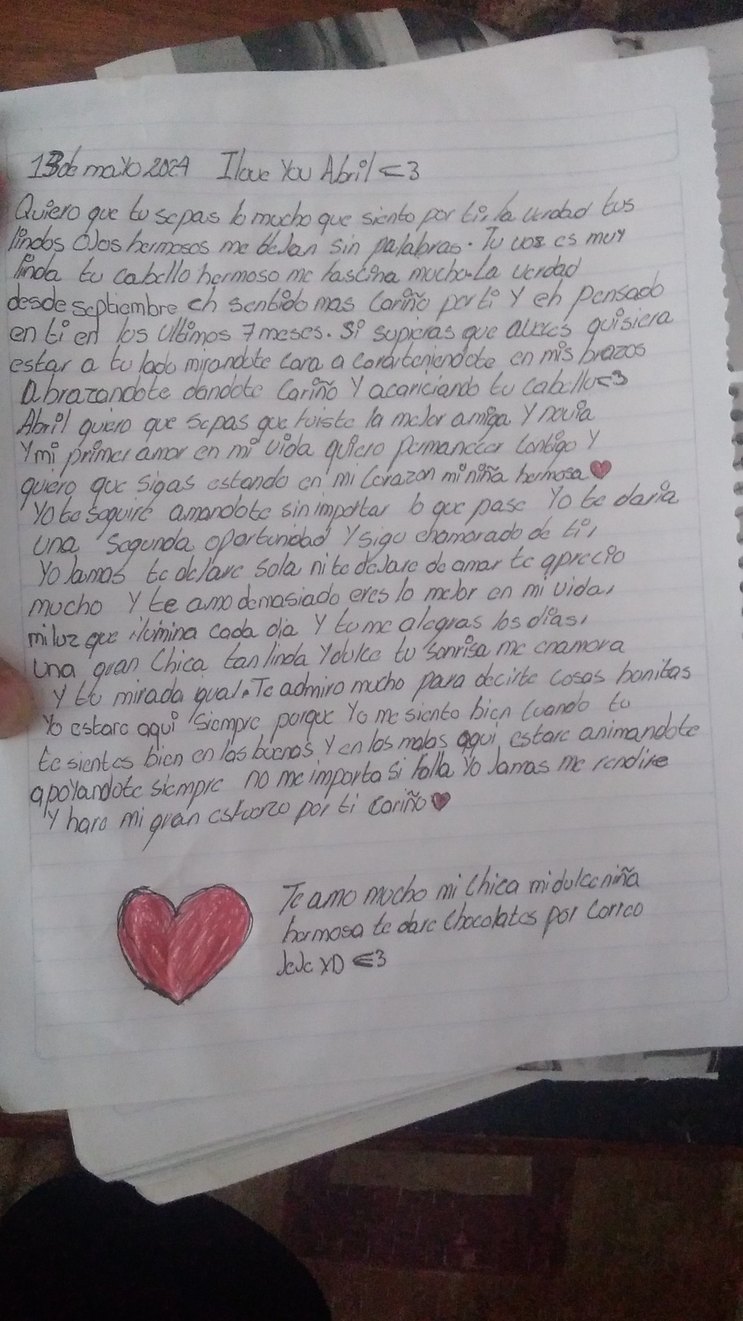 13 de mayo 2024 I love You Abril <3
Quiero que tu sepas lo mucho que siento por ti, la verdad tus
lindos ojos hermosos me dejan sin palabras. Tu voz es muy
linda tu cabello hermoso me fascina mucho. La verdad
desde septiembre eh sentido mas Cariño por ti Y eh Pensado
en ti en los Ultimos 7 meses. Si supieras que aveces quisiera
estar a tu lado mirandote cara a cara, teniendote en mis brazos
Abrazandote dandote Cariño Y acariciando tu cabello <3
Abril quiero que sepas que fuiste la mejor amiga Y novia
Y mi primer amor en mi vida quiero permanecer Contigo Y
quiero que sigas estando en mi Corazon mi niña hermosa ♥
Yo te seguiré amandote sin importar lo que pase Yo te daria
una Segunda oportunidad Y sigo enamorado de ti,
Yo Jamas te dejare Sola ni te dejare de amar te aprecio
mucho Y te amo demasiado eres lo mejor en mi vida,
mi luz que ilumina cada dia Y tu me alegras los dias,
Una gran Chica tan linda Y dulce tu Sonrisa me enamora
Y tu mirada igual. Te admiro mucho para decirte cosas bonitas
Yo estare aqui Siempre porque Yo me siento bien Cuando tu
te sientes bien en las buenas Y en las malas aqui estare animandote
apoyandote siempre no me importa si falla Yo Jamas me rendire
Y hare mi gran esfuerzo por ti cariño ♥
Te amo mucho mi Chica mi dulce niña
hermosa te dare Chocolates por Correo
JeJe XD <3